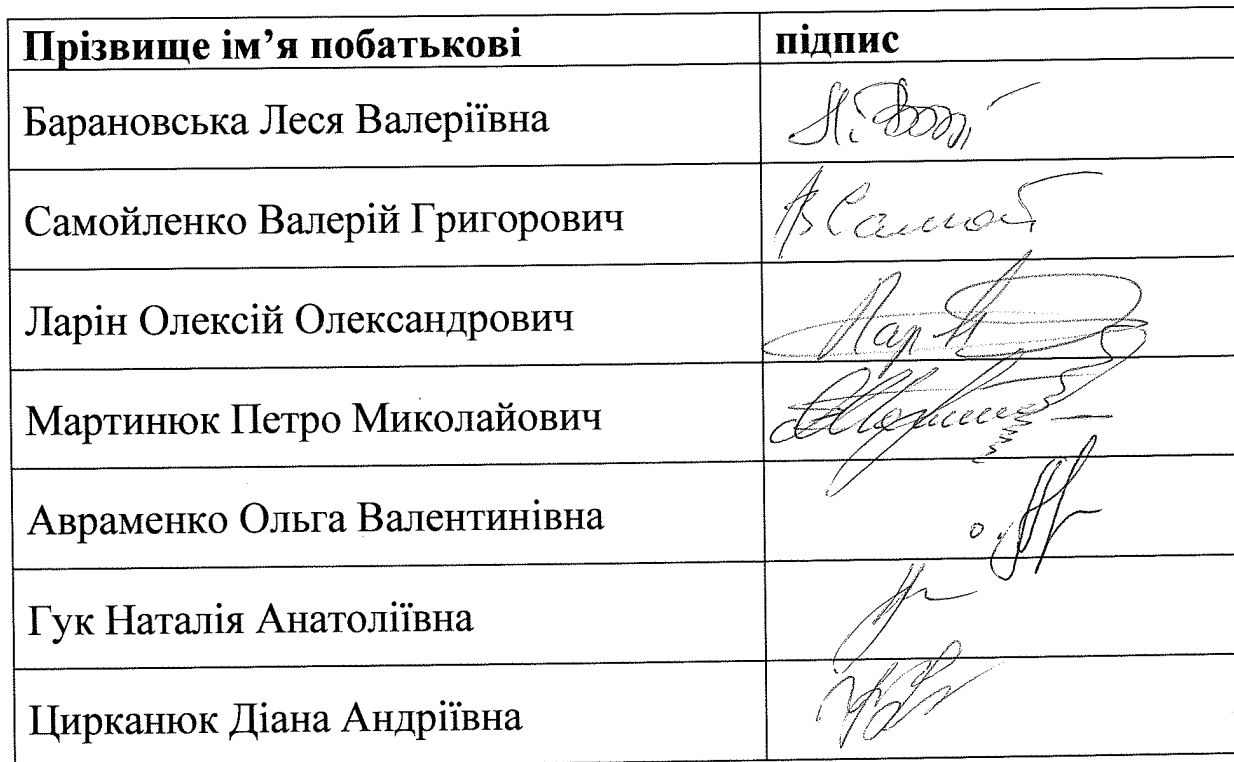 Прізвище ім’я побатькові підпис
Барановська Леся Валеріївна
Самойленко Валерій Григорович
Ларін Олексій Олександрович
Мартинюк Петро Миколайович
Авраменко Ольга Валентинівна
Гук Наталія Анатоліївна
Цирканюк Діана Андріївна